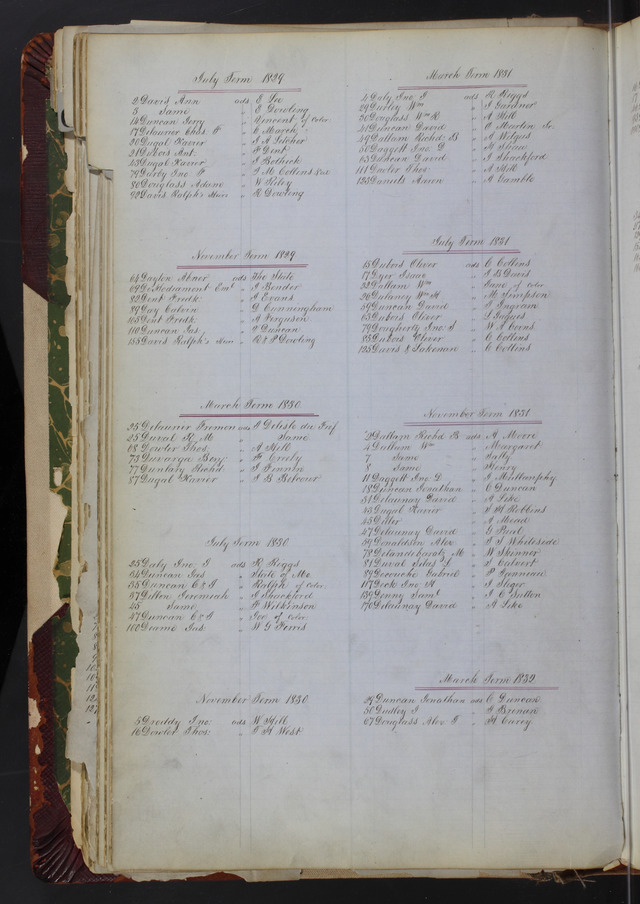 July Term 1829
2 Davis Ann ads E Lee
3 Same " E Dowling
14 Duncan Jerry " Vincent of Color
17 Delaurier Chas F " C March
20 Dugal Xavier " J A Letcher
21 Dubois Ant. " F Dent
43 Dugal Xavier " J Bethick
79 Darby Jno F " J M Collens
80 Douglass Adam " W Riley
92 Davis Ralph's " R Dowling
November Term 1829
64 Dayton Abner ads The State
69 DeModrament " J Bouder
82 Dent Fredk. " A Evans
89 Day Calvin " D Cunningham
105 Dent Fredk " A Ferguson
110 Duncan Jas " A Duncan
155 Davis Ralph's " E & P Dowling
March Term 1830
25 Delaurier Fromon ads J Delisle du Inf
25 Duval R M " Same
68 Dowler Thos " A Hill
73 Benj " H Crosby
77 Dunlavy Richd " J Frann
87 Dugal Xavier " J B Belcour
July Term 1830
25 Daly Jno. J ads R Riggs
34 Duncan Jas " State of Mo
35 Duncan C & J " Ralph of Color
37 Dillon Jeremiah " J Shackford
45 Same " P Wilkinson
47 Duncan C & J " Joe of Color
100 Drame Jas. " W G Ferris
November Term 1830
5 Dreddy Jno. ads W Hill
16 Dowler Thos: " T H West
March Term 1831
4 Daly Jno. J ads R Riggs
29 Durley Wm " J Gardner
30 Douglass Wm R " A Hill
41 Duncan David " C Martin Sr.
49 Dallam Richd B " A Wilgus
50 Daggett Jno. D " H Shaw
63 Duncan David " J Shackford
111 Dowler Thos. " A Hill
123 Aaron " A Gamble
July Term 1831
15 Dubois Oliver ads C Collens
17 Dyer Isaac " J B Davis
32 Dallam Wm " Jane of Color
36 Delaney Wm H " M Simpson
59 Duncan David " J Ingram
65 Dubois Oliver " L Sugues
79 Dougherty Jno. J " W A Coons
85 Dubois Oliver " C Collens
125 Davis & Lakenan " C Collins
November Term 1831
2 Dallam Richd B ads A Moore
4 Dallam Wm " Margaret
6 Same " Sally
8 Same " Henry
11 Daggett Jno. D " J Mullanphy
18 Duncan Jonathan " C Duncan
31 Delaunay David " A Leke
43 Dugal Xavier " S H Robbins
45 Diller " A Mead
47 Delaunay David " E Paul
59 Donaldson Alex " J S Whiteside
78 M " W Skinner
81 Duval Silas L " S Calvert
89 Gabriel " P Gremiar
117 Deck Jno. H " J Algor
139 Denny Saml " J C Sutton
170 Delaunay David " A Leke
March Term 1832
29 Duncan Jonathan ads C Duncan
50 Dudley J " J Brenan
67 Douglass Alex T " H Carey